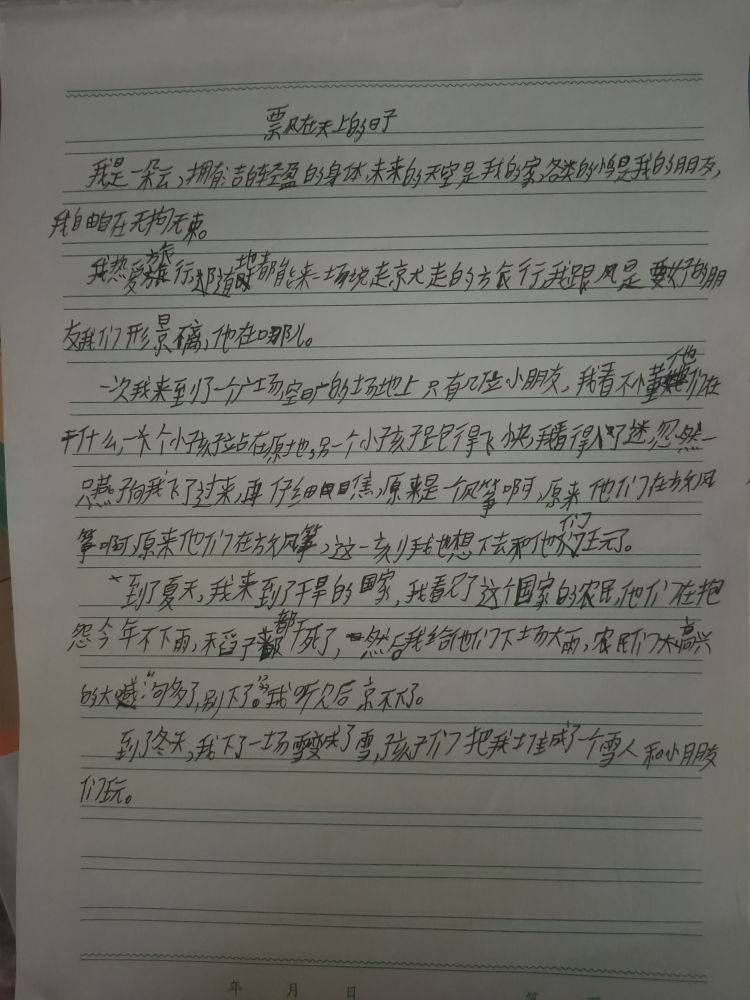 票风在天上的日子
我是一朵云,拥有洁白轻盈的身体,未来的天空是我的家,各类的鸟是我的朋友,
我自由自在无拘无束。
我热爱旅行,都能来一场说走京尤走的方旅行,我跟风是要好的朋
友我们形景不离,他在哪儿。
一次我来到了一个广场,空旷的场地上只有几位小朋友,我看不懂他们在
干什么,一个小孩子站在原地,另一个小孩子跑得飞快,我看得入了迷,忽然一
只燕子向我飞了过来,再仔细目焦,原来是一个风筝啊,原来他们在放风
筝啊,原来他们在放风筝,这一刻我也想下去和他们玩了。
到了夏天,我来到了干旱的国家,我看见了这个国家的农民,他们在抱
怨今年不下雨,禾稻子都干死了,然后我给他们下场大雨,农民们大高兴
的大喊“句多了,别下了。”我听见后京不下了。
到了冬天,我下了一场雪变成了雪,孩子们把我土隹成了一个雪人和小朋友
们玩。
年 月 日